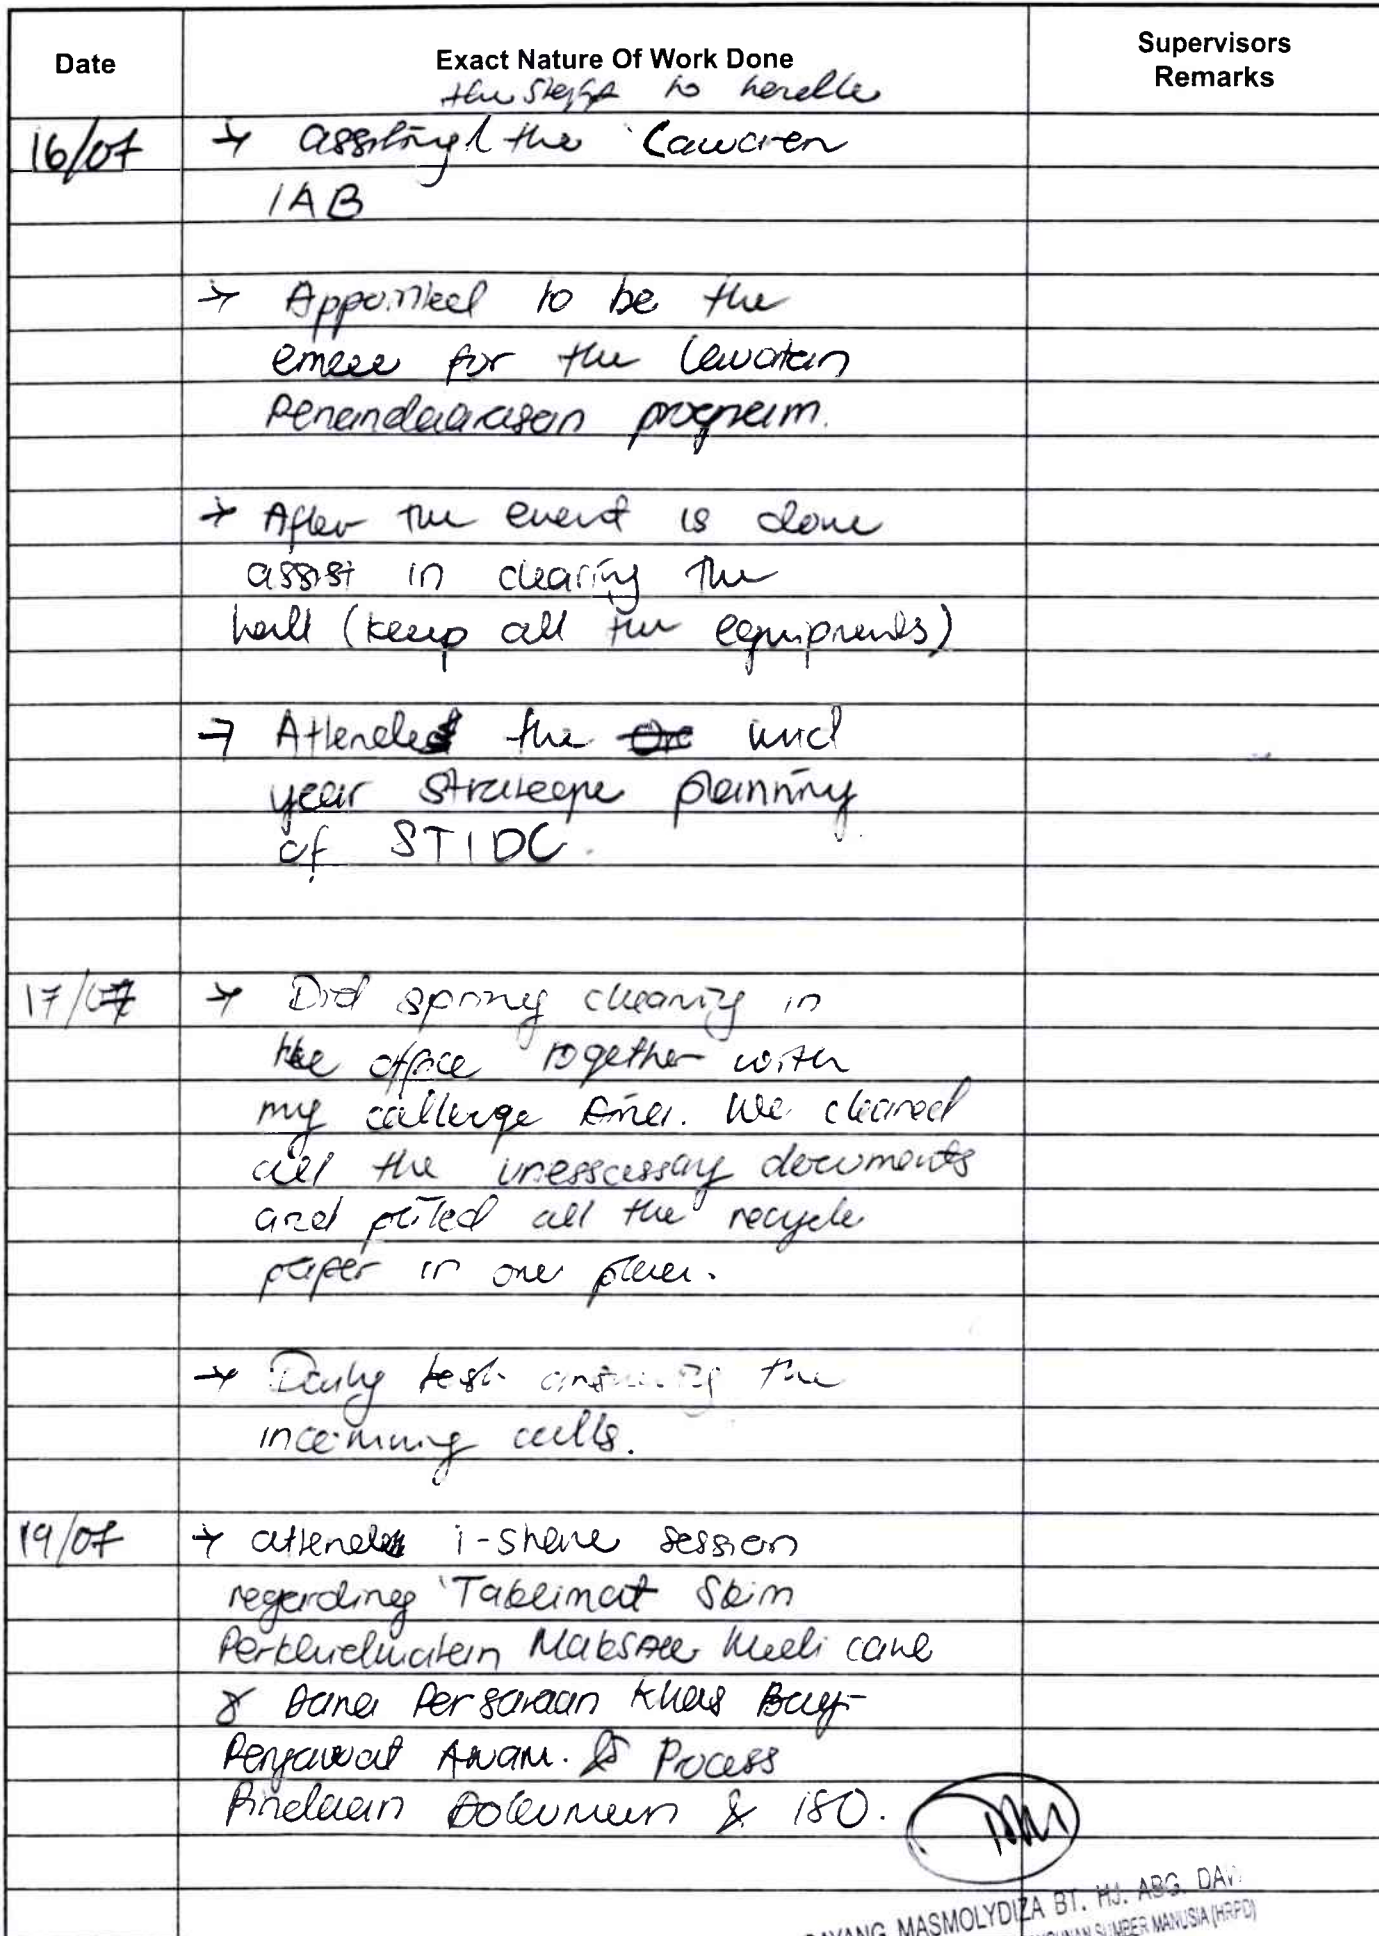 Date
Exact Nature Of Work Done
Supervisors
Remarks
the staff to handle
16/07
→ assisting the 'Lawatan
IAB
→ Appointed to be the
emcee for the Lawatan
Penandaarasan program.
→ After the event is done
assist in clearing the
hall (keep all the equipments)
→ Attended the mid
year strategic planning
of STIDC.
17/07
→ Did spring cleaning in
the office together with
my colleage We cleared
all the unesscessary documents
and piled all the recycle
paper in one place.
→ Daily task answering the
incomming calls.
19/07
→ attended i-share session
regarding 'Taklimat Skim
Perkhidmatan Medi care
& Dana Persaraan Khas Bagi
Penjawat Awam. & Process
Pindaan Dokumen & ISO.
DAYANG MASMOLYDIZA BT. HJ. ABG. DAV
SUMBER MANUSIA (HRPD)